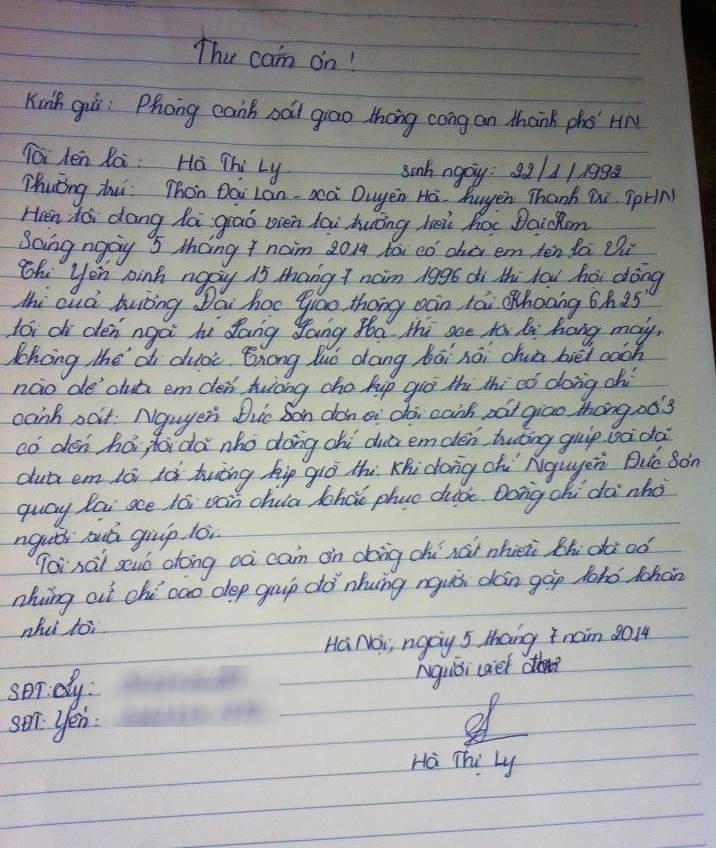 Thư cám ơn!
Kính gửi: Phòng cảnh sát giao thông công an thành phố HN
Tôi tên là: Hà Thị Ly sinh ngày: 22/1/1992
Thường trú: Thôn Đại Lan - xã Duyên Hà - huyện Thanh Trì. TpHN
Hiện tôi đang là giáo viên tại trường tiểu học Đại Kim
Sáng ngày 5 tháng 7 năm 2014 tôi có đưa em tên là Vũ
Thị Yến sinh ngày 15 tháng 7 năm 1996 đi thi tại hội đồng
thi của trường Đại học Giao thông vận tải. Khoảng 6h25'
tôi đi đến ngã tư Láng Láng Hạ thì xe tôi bị hỏng máy,
không thể đi được. Trong lúc đang bối rối chưa biết cách
nào để đưa em đến trường cho kịp giờ thi thì có đồng chí
cảnh sát: Nguyễn Đức Sơn đơn vị đội cảnh sát giao thông số 3
có đến hỏi, tôi đã nhờ đồng chí đưa em đến trường giúp và đã
đưa em tôi tới trường kịp giờ thi. Khi đồng chí Nguyễn Đức Sơn
quay lại xe tôi vẫn chưa khắc phục được. Đồng chí đã nhờ
người sửa giúp tôi.
Tôi rất xúc động và cảm ơn đồng chí rất nhiều khi đã có
những cử chí cao đẹp giúp đỡ những người dân gặp khó khăn
như tôi.
Hà Nội, ngày 5 tháng 7 năm 2014
Người viết
SĐT: Ly:
SĐT: Yến:
Hà Thị Ly